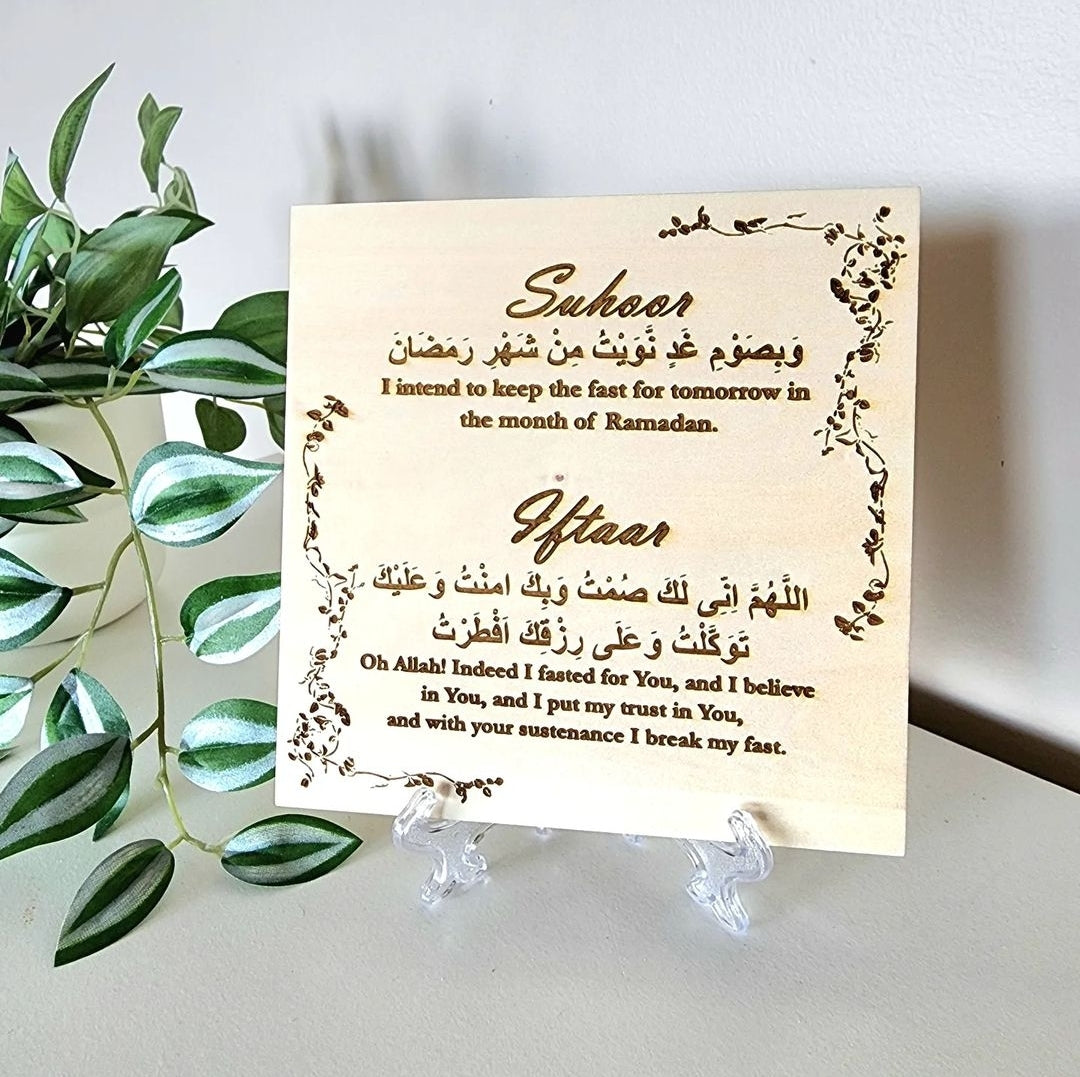 Suhoor
وَبِصَوْمِ غَدٍ نَّوَيْتُ مِنْ شَهْرِ رَمَضَانَ
I intend to keep the fast for tomorrow in
the month of Ramadan.
Iftaar
اللَّهُمَّ اِنِّى لَكَ صُمْتُ وَبِكَ امنْتُ وَعَلَيْكَ
تَوَكَّلْتُ وَعَلَى رِزْقِكَ اَفْطَرْتُ
Oh Allah! Indeed I fasted for You, and I believe
in You, and I put my trust in You,
and with your sustenance I break my fast.